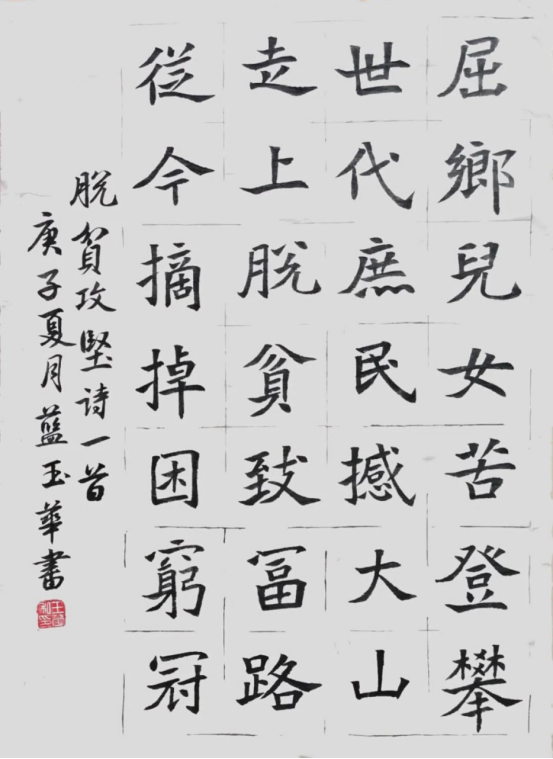 屈鄉兒女苦登攀
世代庶民撼大山
走上脫貧致冨路
從今摘掉困窮冠
脫貧攻堅詩一首
庚子夏月藍玉華書